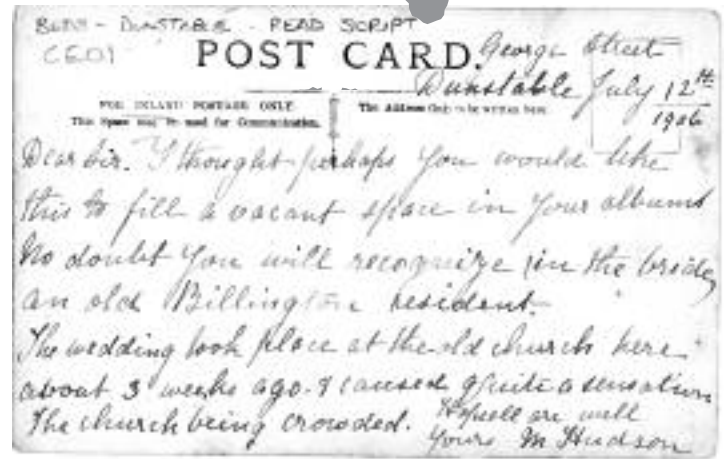 BEDS - DUNSTABLE - READ SCRIPT
CE01
POST CARD.
George Street
Dunstable July 12th
1906
FOR INLAND POSTAGE ONLY.
This Space may be used for Communication.
The Address Only to be written here.
Dear Sir. I thought perhaps you would like
this to fill a vacant space in your albums
No doubt you will recognize in the bride,
an old Billington resident.
The wedding took place at the old church here
about 3 weeks ago. & caused quite a sensation
The church being crowded. Hope all are well
Yours M Hudson